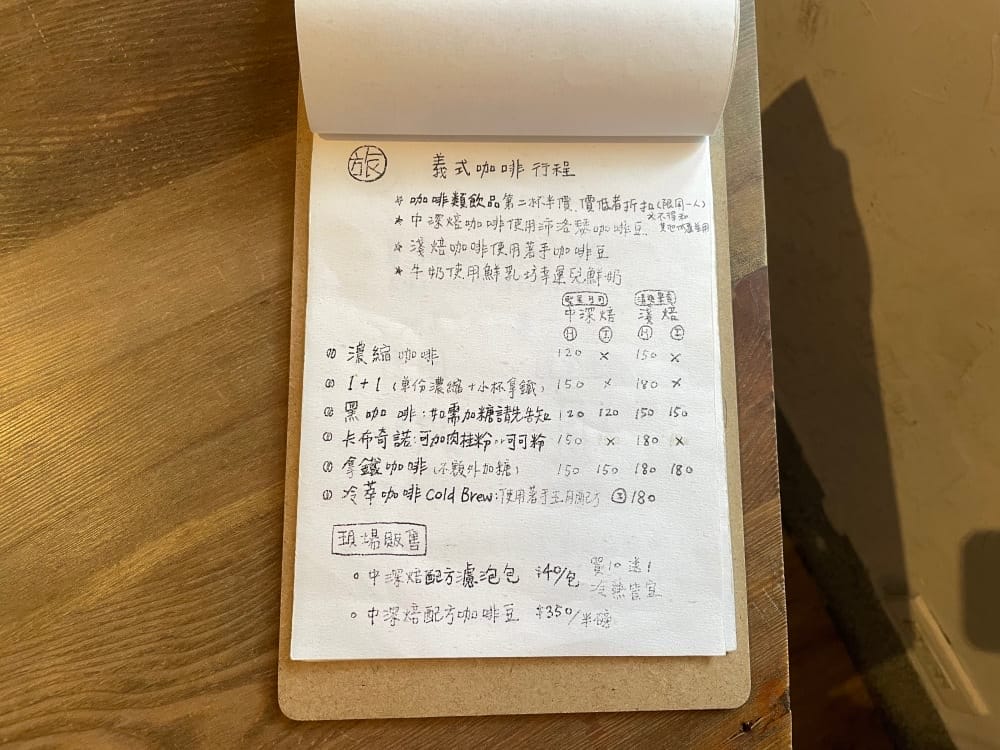 旅 義式咖啡行程
* 咖啡類飲品第二杯半價 價低者折扣(限同一人)
* 中深焙咖啡使用沛洛瑟咖啡豆
* 淺焙咖啡使用著手咖啡豆
* 牛奶使用鮮乳坊幸運兒鮮奶
中深焙 淺焙
H I H I
濃縮咖啡 120 x 150 x
1+1 (單份濃縮+小杯拿鐵) 150 x 180 x
黑咖啡:如需加糖請先告知 120 120 150 150
卡布奇諾:可加肉桂粉or可可粉 150 x 180 x
拿鐵咖啡(不額外加糖) 150 150 180 180
冷萃咖啡 Cold Brew:使用著手 配方 I 180
現場販售
。中深焙配方濾泡包 $40/包 買10送1
冷熱皆宜
。中深焙配方咖啡豆 $350/半磅